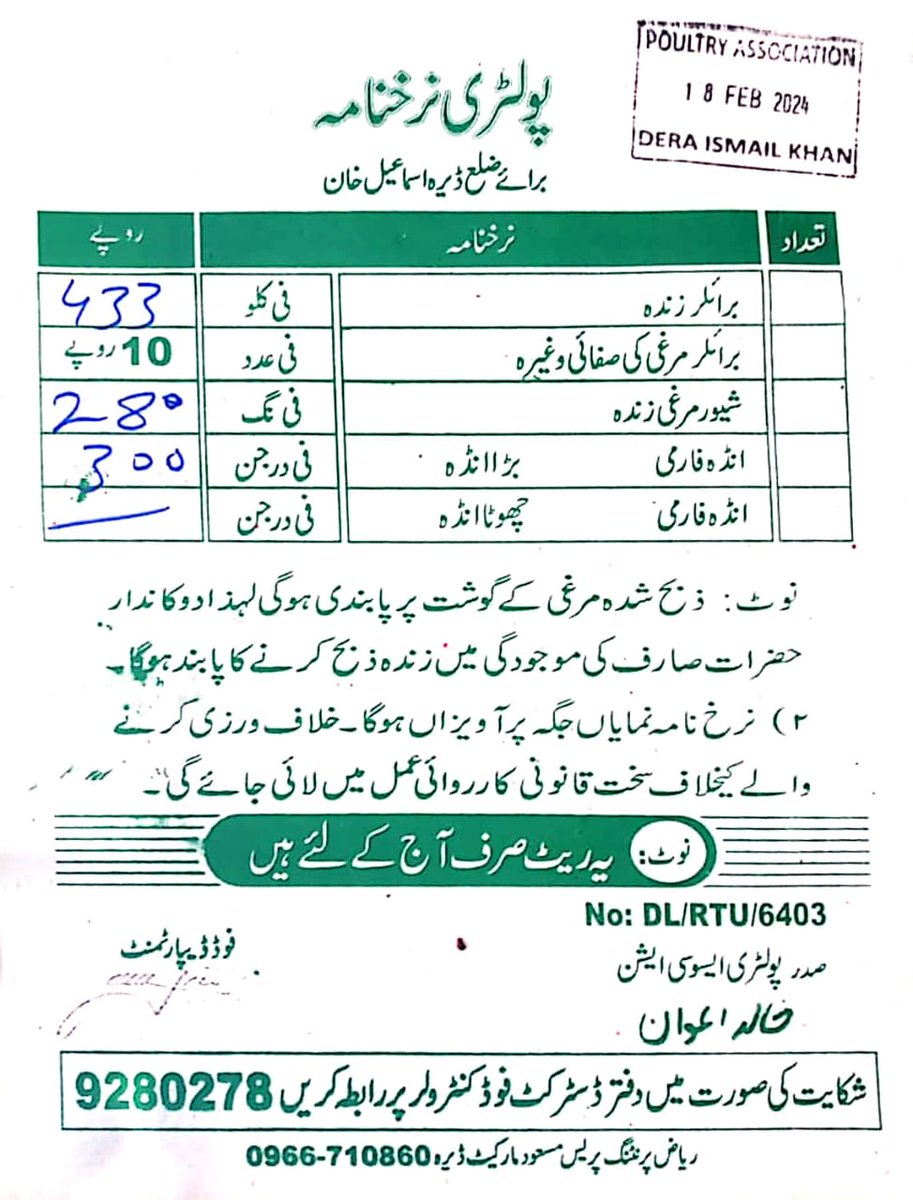 POULTRY ASSOCIATION
18 FEB 2024
DERA ISMAIL KHAN
پولٹری نرخنامہ
برائے ضلع ڈیرہ اسماعیل خان
تعداد نرخنامہ روپے
برائلر زندہ فی کلو 433
برائلر مرغی کی صفائی وغیرہ فی عدد 10 روپے
شیور مرغی زندہ فی نگ 280
انڈہ فارمی بڑا انڈہ فی درجن 300
انڈہ فارمی چھوٹا انڈہ فی درجن
نوٹ: ذبح شدہ مرغی کے گوشت پر پابندی ہوگی لہذا دوکاندار
حضرات صارف کی موجودگی میں زندہ ذبح کرنے کا پابند ہوگا۔
۲) نرخ نامہ نمایاں جگہ پر آویزاں ہوگا۔ خلاف ورزی کرنے
والے کیخلاف سخت قانونی کارروائی عمل میں لائی جائے گی۔
نوٹ: یہ ریٹ صرف آج کے لئے ہیں
No: DL/RTU/6403
صدر پولٹری ایسوسی ایشن
خالد اعوان
فوڈ ڈیپارٹمنٹ
شکایت کی صورت میں دفتر ڈسٹرکٹ فوڈ کنٹرولر پر رابطہ کریں 9280278
ریاض پرنٹنگ پریس مسعود مارکیٹ ڈیرہ 0966-710860